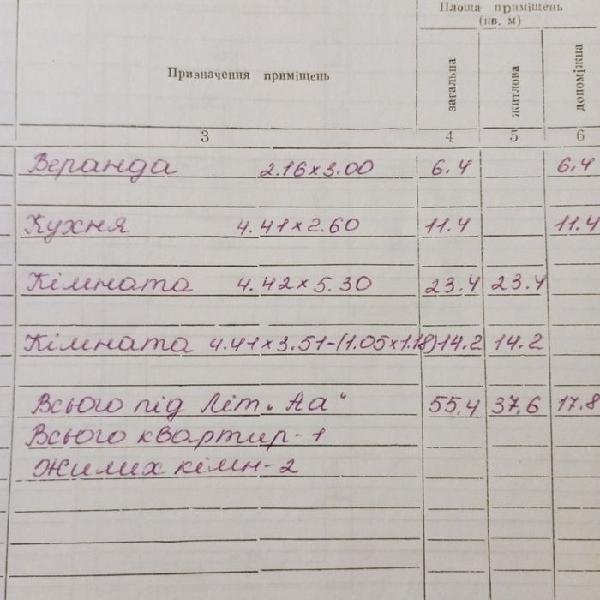 Площа приміщень
(кв. м)
Призначення приміщень
загальна
житлова
допоміжна
3 4 5 6
Веранда 2.16×3.00 6.4 6.4
Кухня 4.41×2.60 11.4 11.4
Кімната 4.42×5.30 23.4 23.4
Кімната 4.41×3.51-(1.05×1.18) 14.2 14.2
Всього під Літ „Аа" 55.4 37.6 17.8
Всього квартир-1
Жилих кімн-2